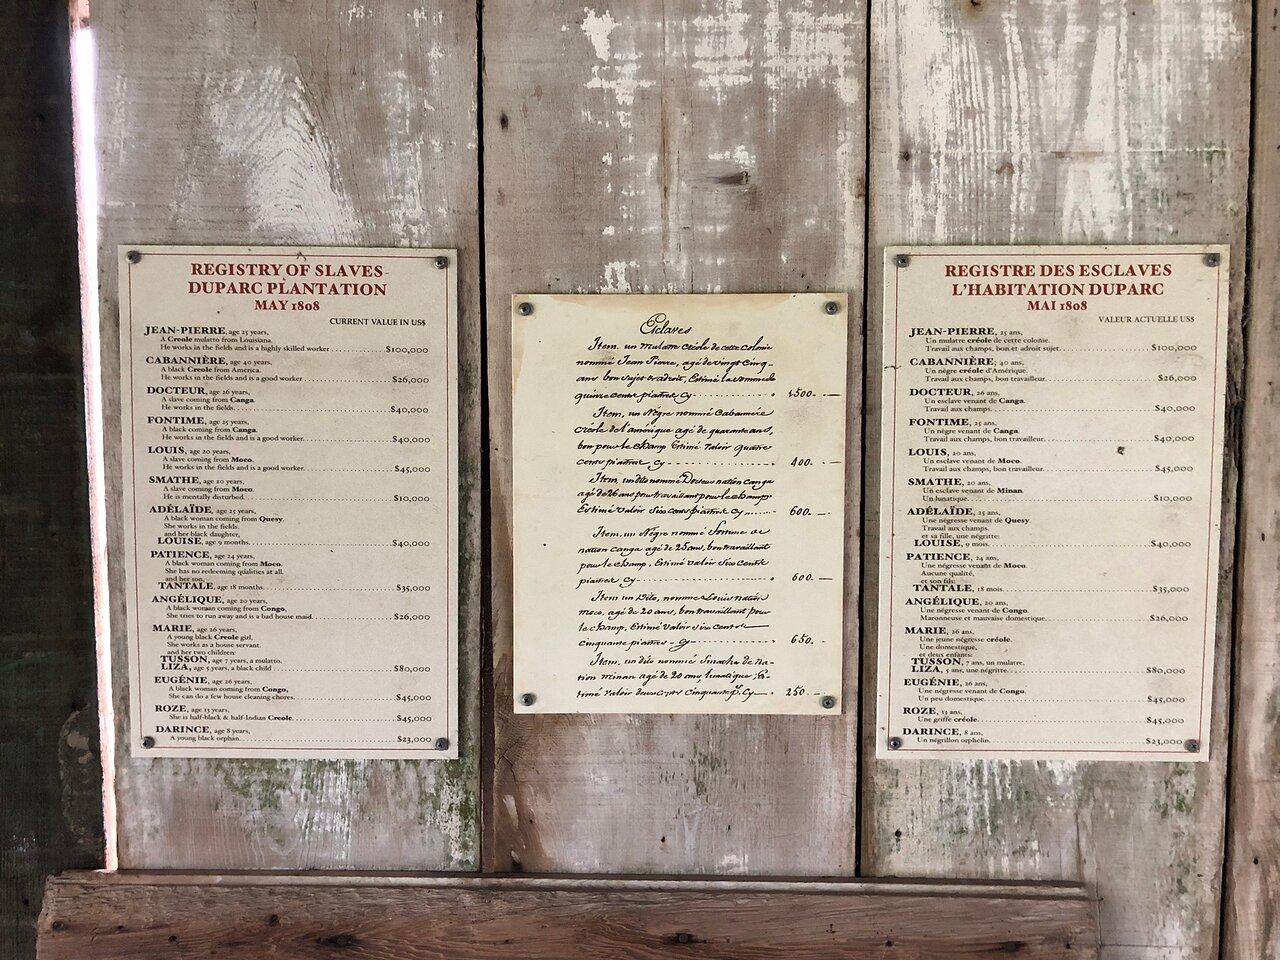 REGISTRY OF SLAVES
DUPARC PLANTATION
MAY 1808
CURRENT VALUE IN US$
JEAN-PIERRE, age 25 years,
A Creole mulatto from Louisiana.
He works in the fields and is a highly skilled worker ..................... $100,000
CABANNIÈRE, age 40 years,
A black Creole from America.
He works in the fields and is a good worker. ..................... $26,000
DOCTEUR, age 26 years,
A slave coming from Canga.
He works in the fields. ..................... $40,000
FONTIME, age 25 years,
A black coming from Canga.
He works in the fields and is a good worker. ..................... $40,000
LOUIS, age 20 years,
A slave coming from Moco.
He works in the fields and is a good worker. ..................... $45,000
SMATHE, age 20 years,
A slave coming from Moco.
He is mentally disturbed. ..................... $10,000
ADÉLAÏDE, age 25 years,
A black woman coming from Quesy.
She works in the fields.
and her black daughter,
LOUISE, age 9 months. ..................... $40,000
PATIENCE, age 24 years,
A black woman coming from Moco.
She has no redeeming qualities at all.
and her son,
TANTALE, age 18 months. ..................... $35,000
ANGÉLIQUE, age 20 years,
A black woman coming from Congo,
She tries to run away and is a bad house maid. ..................... $26,000
MARIE, age 26 years,
A young black Creole girl,
She works as a house servant.
and her two children:
TUSSON, age 7 years, a mulatto.
LIZA, age 5 years, a black child ..................... $80,000
EUGÉNIE, age 26 years,
A black woman coming from Congo,
She can do a few house cleaning chores. ..................... $45,000
ROZE, age 13 years,
She is half-black & half-Indian Creole. ..................... $45,000
DARINCE, age 8 years,
A young black orphan. ..................... $23,000
Esclaves
Item, un mulatre créole de cette colonie
nommé Jean Pierre, agé de vingt Cinq-
ans bon sujet & adroit, Estimé la somme de
quinze cents piastres Cy ............ 1500. —
Item, un Nègre nommé Cabannière
Créole de l'amérique agé de quarante ans,
bon pour le Champ Estimé Valoir Quatre
Cents piastres Cy ............ 400. —
Item, un dito nommé Docteur nation Canga
agé de 26 ans pour travaillant pour le Champ
Estimé Valoir Six Cents piastres Cy ........ 600. —
Item, un Nègre nommé
nation Canga agé de 25 ans, bon travaillant
pour le Champ, Estimé Valoir Six Cents
piastres Cy ............ 600. —
Item un Dito, nommé Louis nation
Moco, agé de 20 ans, bon travaillant pour
le Champ, Estimé Valoir Six Cents
Cinquante piastres - Cy ............ 650. —
Item, un dito nommé Smathe de na-
tion minan agé de 20 ans lunatique, Es-
timé Valoir deux Cents Cinquante p. Cy — 250 —
REGISTRE DES ESCLAVES
L'HABITATION DUPARC
MAI 1808
VALEUR ACTUELLE US$
JEAN-PIERRE, 25 ans,
Un mulatre créole de cette colonie.
Travail aux champs, bon et adroit sujet. ..................... $100,000
CABANNIÈRE, 40 ans,
Un nègre créole d'Amérique.
Travail aux champs, bon travailleur. ..................... $26,000
DOCTEUR, 26 ans,
Un esclave venant de Canga.
Travail aux champs. ..................... $40,000
FONTIME, 25 ans,
Un nègre venant de Canga.
Travail aux champs, bon travailleur. ..................... $40,000
LOUIS, 20 ans,
Un esclave venant de Moco.
Travail aux champs, bon travailleur. ..................... $45,000
SMATHE, 20 ans,
Un esclave venant de Minan.
Un lunatique. ..................... $10,000
ADÉLAÏDE, 25 ans,
Une négresse venant de Quesy.
Travail aux champs.
et sa fille, une négritte:
LOUISE, 9 mois. ..................... $40,000
PATIENCE, 24 ans,
Une négresse venant de Moco.
Aucune qualité,
et son fils:
TANTALE, 18 mois. ..................... $35,000
ANGÉLIQUE, 20 ans,
Une négresse venant de Congo.
Maronneuse et mauvaise domestique. ..................... $26,000
MARIE, 26 ans,
Une jeune négresse créole.
Une domestique,
et deux enfants:
TUSSON, 7 ans, un mulatre,
LIZA, 5 ans, une négritte. ..................... $80,000
EUGÉNIE, 26 ans,
Une négresse venant de Congo.
Un peu domestique. ..................... $45,000
ROZE, 13 ans,
Une griffe créole. ..................... $45,000
DARINCE, 8 ans,
Un négrillon orphelin. ..................... $23,000